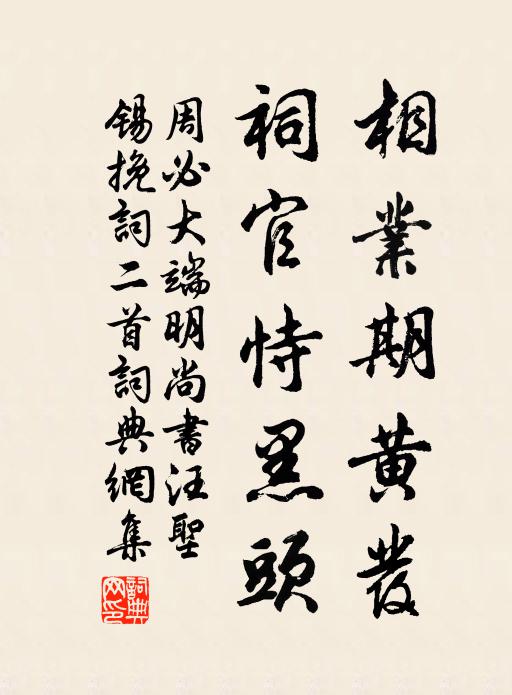 相業期黄發
祠官恃黑頭
周必大端明尚書汪聖
錫挽詞二首詞典網集
詞典網印